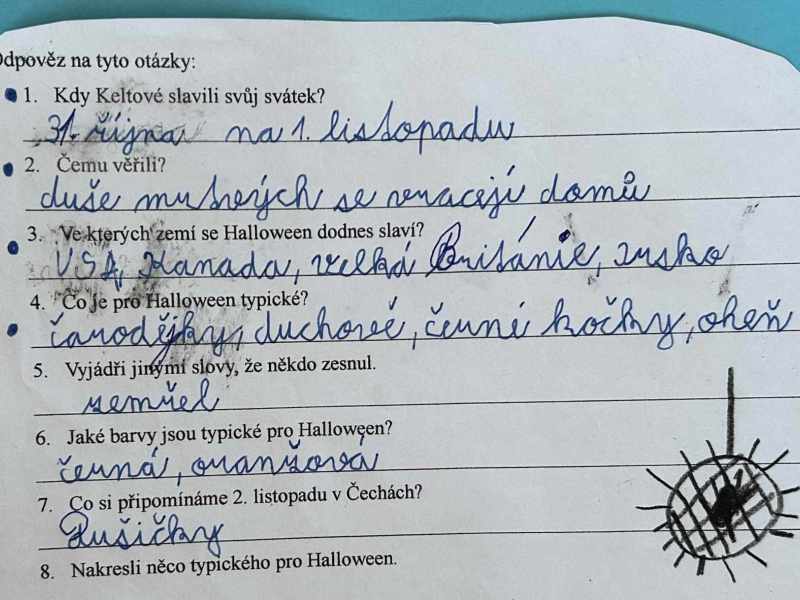 Odpověz na tyto otázky:
1. Kdy Keltové slavili svůj svátek?
31. října na 1. listopadu
2. Čemu věřili?
duše mrtvých se vracejí domů
3. Ve kterých zemí se Halloween dodnes slaví?
USA, Kanada, velká Británie, irsko
4. Co je pro Halloween typické?
čarodějky, duchové, černé kočky, oheň
5. Vyjádři jinými slovy, že někdo zesnul.
zemřel
6. Jaké barvy jsou typické pro Halloween?
černá, oranžová
7. Co si připomínáme 2. listopadu v Čechách?
Dušičky
8. Nakresli něco typického pro Halloween.